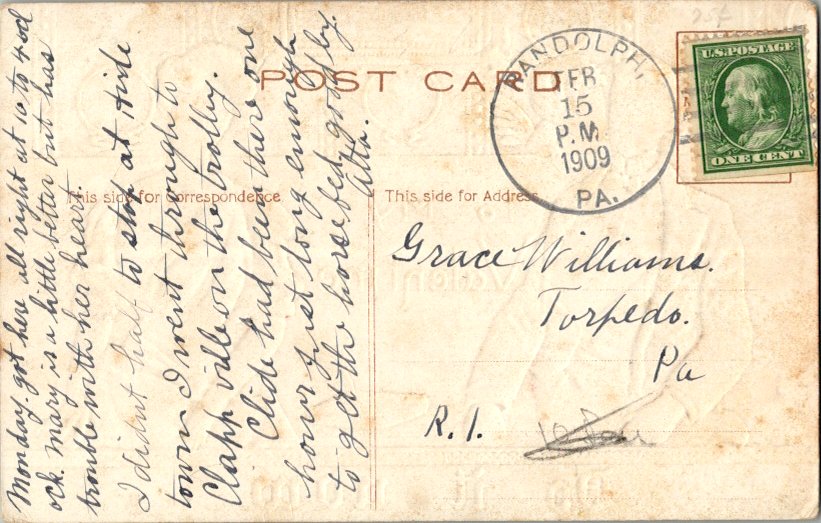 POST CARD
RANDOLPH,
FEB
15
P.M.
1909
PA.
U.S. POSTAGE
ONE CENT
This side for Correspondence.
This side for Address
Monday. got here all right at 10 to 4 ocl
ock. Mary is a little better but has
trouble with her heart.
I didnt half to stop at
town I went through to
Clapp ville on the trolley.
Clide had been there one
hour just long enough
to get the horse fed. good by.
Alta.
Grace Williams.
Torpedo.
Pa
R.1.